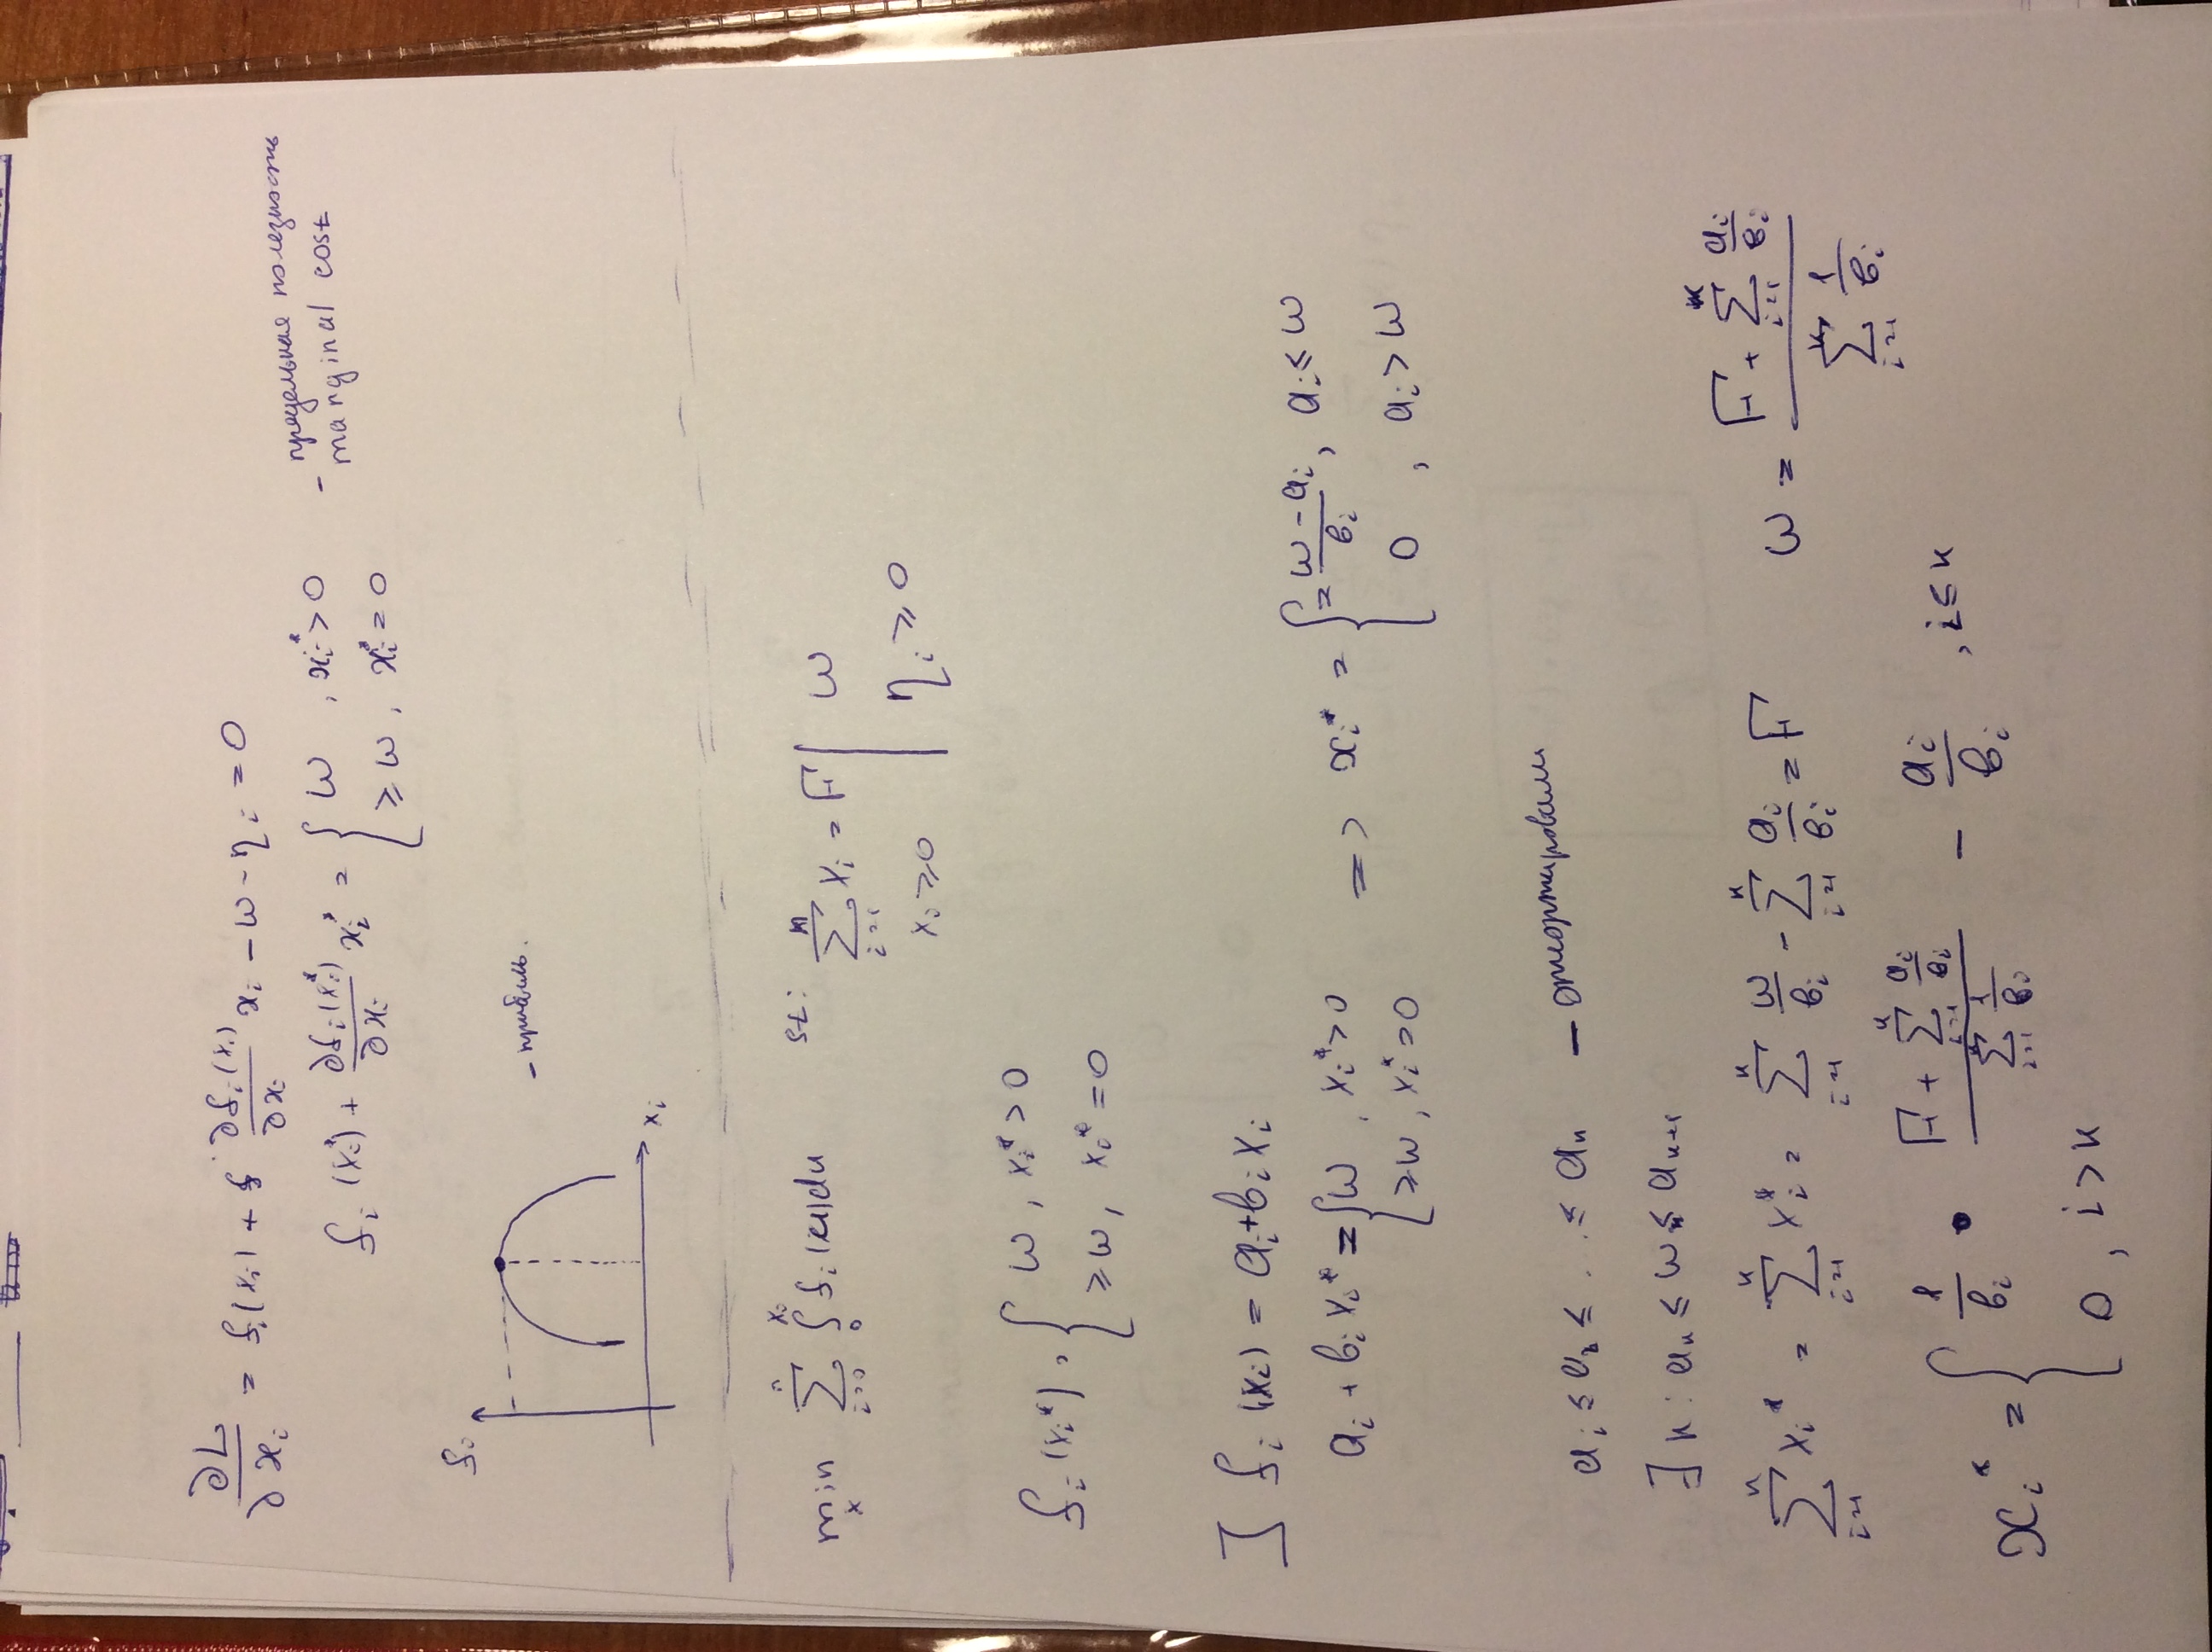 ∂L/∂x_i = f_i(x_i) + ∂f_i(x_i)/∂x_i x_i - ω - η_i = 0
f_i(x_i*) + ∂f_i(x_i*)/∂x_i x_i* = { ω, x_i* > 0
≥ ω, x_i* = 0
- предельная полезность
marginal cost
f_i
- прибыль.
x_i
min_x ∑_{i=0}^{n} ∫_0^{x_i} f_i(u)du st: ∑_{i=1}^{n} x_i = F | ω
x_i ≥ 0 | η_i ≥ 0
f_i(x_i*) = { ω, x_i* > 0
≥ ω, x_i* = 0
] f_i(x_i) = a_i + b_i x_i
a_i + b_i x_i* = { ω, x_i* > 0
≥ ω, x_i* = 0
=> x_i* = { = (ω - a_i)/b_i, a_i ≤ ω
0, a_i > ω
a_i ≤ a_2 ≤ ... ≤ a_n - отсортировали
∃ к: a_к ≤ ω ≤ a_{к+1}
∑_{i=1}^{n} x_i* = ∑_{i=1}^{к} x_i* = ∑_{i=1}^{к} ω/b_i - ∑_{i=1}^{к} a_i/b_i = F
ω = (F + ∑_{i=1}^{к} a_i/b_i) / (∑_{i=1}^{к} 1/b_i)
x_i* = { 1/b_i • (F + ∑_{i=1}^{к} a_i/b_i) / (∑_{i=1}^{к} 1/b_i) - a_i/b_i, i ≤ к
0, i > к